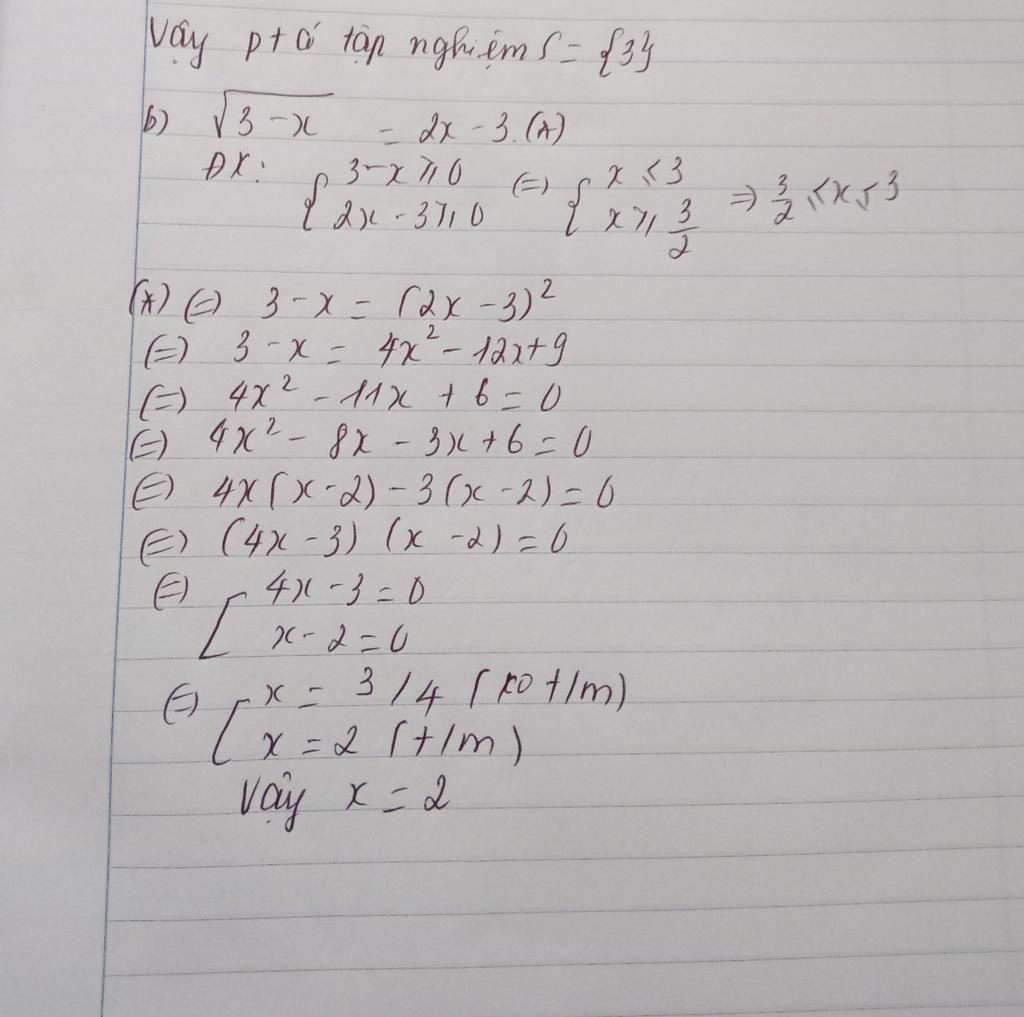 Vậy pt có tập nghiệm S = {3}
b) √(3-x) = 2x - 3. (*)
ĐK: { 3-x ⩾ 0 (=) { x ⩽ 3 => 3/2 ⩽ x ⩽ 3
2x - 3 ⩾ 0 x ⩾ 3/2
(*) (=) 3 - x = (2x - 3)²
(=) 3 - x = 4x² - 12x + 9
(=) 4x² - 11x + 6 = 0
(=) 4x² - 8x - 3x + 6 = 0
(=) 4x(x-2) - 3(x-2) = 0
(=) (4x - 3) (x - 2) = 0
(=) [ 4x - 3 = 0
x - 2 = 0
(=) [ x = 3/4 (ko t/m)
x = 2 (t/m)
Vậy x = 2